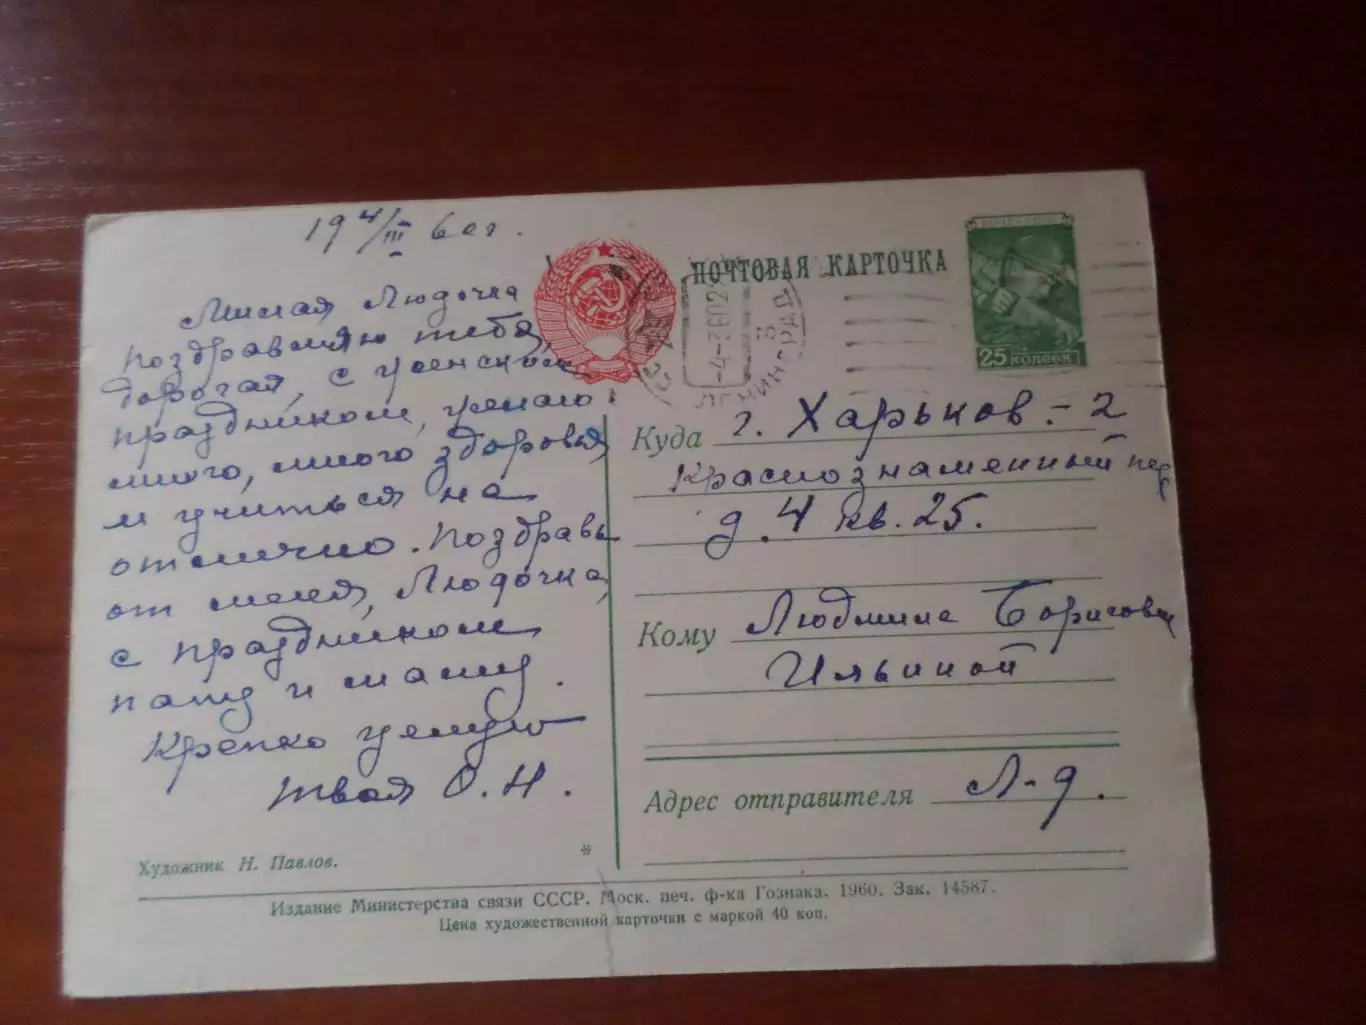 19 4/III 60г.
Милая Людочка
поздравляю тебя,
дорогая, с женским
праздником, желаю
много, много здоровья
и учиться на
отлично. Поздравь
от меня, Людочка,
с праздником
папу и маму.
Крепко целую
твоя О.Н.
Художник Н. Павлов.
*
ПОЧТОВАЯ КАРТОЧКА
ПОЧТА СССР
25 КОПЕЕК
СССР
ЛЕНИНГРАД
Куда г. Харьков-2
Краснознаменный пер
д. 4 кв. 25.
Кому Людмиле Борисовне
Ильиной
Адрес отправителя Л-д.
Издание Министерства связи СССР. Моск. печ. ф-ка Гознака. 1960. Зак. 14587.
Цена художественной карточки с маркой 40 коп.